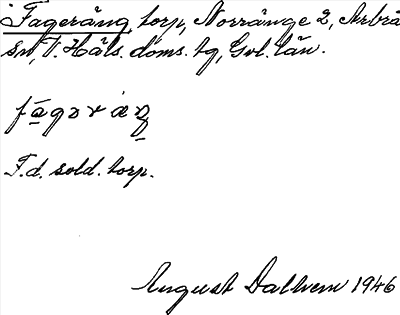 Fageräng, torp, Norränge 2, Arbrå
sn, V. Häls. doms. tg, Gvl. län.
F.d. sold. torp.
August Dalhem 1946